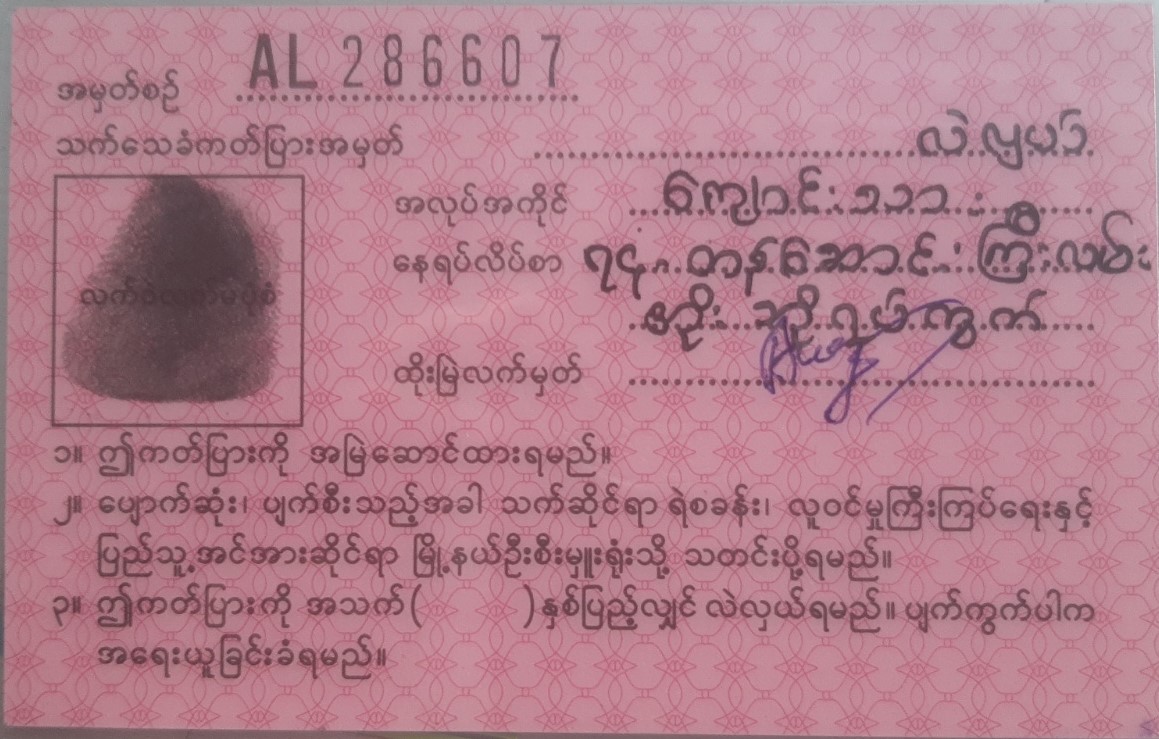 အမှတ်စဉ် AL 286607
သက်သေခံကတ်ပြားအမှတ်
အလုပ်အကိုင် ကျောင်းသား
နေရပ်လိပ်စာ ၇၄၊ တန်ဆောင်းကြီးလမ်း
ရပ်ကွက်
ထိုးမြဲလက်မှတ်
၁။ ဤကတ်ပြားကို အမြဲဆောင်ထားရမည်။
၂။ ပျောက်ဆုံး၊ ပျက်စီးသည့်အခါ သက်ဆိုင်ရာ ရဲစခန်း၊ လူဝင်မှုကြီးကြပ်ရေးနှင့်
ပြည်သူ့အင်အားဆိုင်ရာ မြို့နယ်ဦးစီးမှူးရုံးသို့ သတင်းပို့ရမည်။
၃။ ဤကတ်ပြားကို အသက်( )နှစ်ပြည့်လျှင် လဲလှယ်ရမည်။ ပျက်ကွက်ပါက
အရေးယူခြင်းခံရမည်။